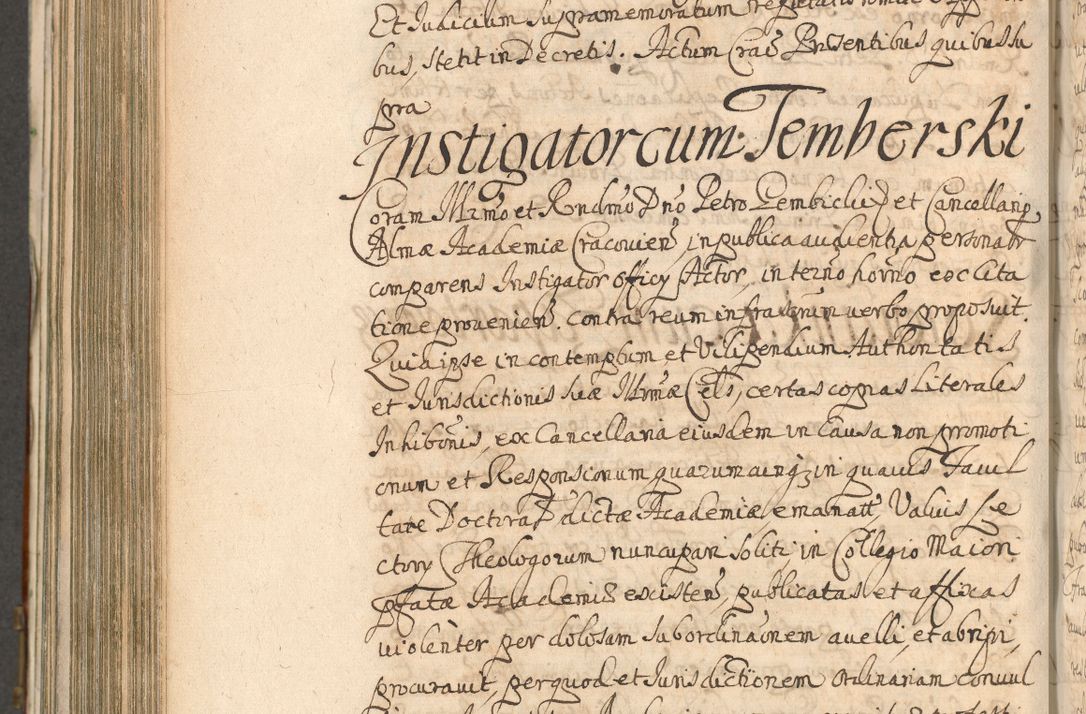 Et Iudicium supramemoratum
bus, stetit in Decretis. Actum Crac̃ Præsentibus quibus su
pra
Instigator cum Temberski
Coram Illr̃mo et Rndm̃o Dnõ Petro Gembicki et Cancellario
Almæ Academiæ Cracovien̄, in publica audientia personalr
comparens Instigator officy Actor, in termo horño ex Cita
tione provenien̄. contra reum infrascrum verbo proposuit.
Quia ipse in contemptum et Vilipendium Authoritatis
et Iurisdictionis suæ Illrm̃æ Cels, certas copias Literales
Inhibonis, ex Cancellaria eiusdem in Causa non promoti
onum et Responsionum quarumcunqz in quavis Facul
tate Doctora dictæ Academiæ, emanatt, Valvis Le
ctory Theologorum nuncupari soliti, in Collegio Maiori
pfatæ Academiæ existen̄, publicatas et affixas
violenter per dolosam subordinaonem avelli, et abripi,
procuravit, per quod et Iurisdictionem Ordinariam convul